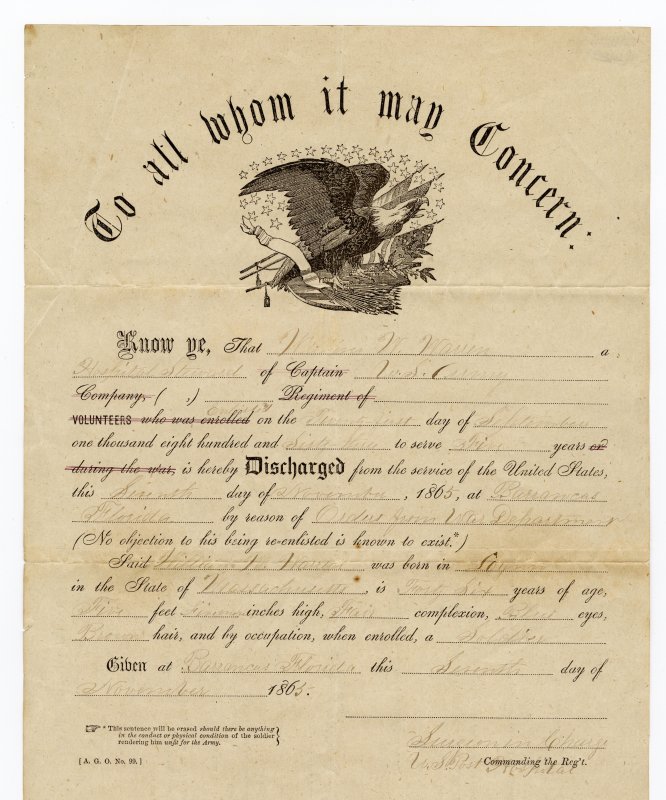 To all whom it may Concern:
Know ye, That William W. Warren a
Hospital Steward of Captain U.S. Army
Company, ( ,) Regiment of
VOLUNTEERS who was enrolled on the First day of September
one thousand eight hundred and Sixty to serve Five years or
during the war, is hereby Discharged from the service of the United States,
this Seventh day of November, 1865, at Barrancas
Florida by reason of Orders from War Department
(No objection to his being re-enlisted is known to exist.*)
Said William W. Warren was born in
in the State of Massachusetts, is Six years of age,
Five feet inches high, Fair complexion, Blue eyes,
Brown hair, and by occupation, when enrolled, a Soldier
Given at Barrancas Florida this Seventh day of
November 1865.
* This sentence will be erased should there be anything
in the conduct or physical condition of the soldier
rendering him unfit for the Army.
Surgeon in Charge
[A. G. O. No. 99.] U.S. Post Hospital Commanding the Reg't.